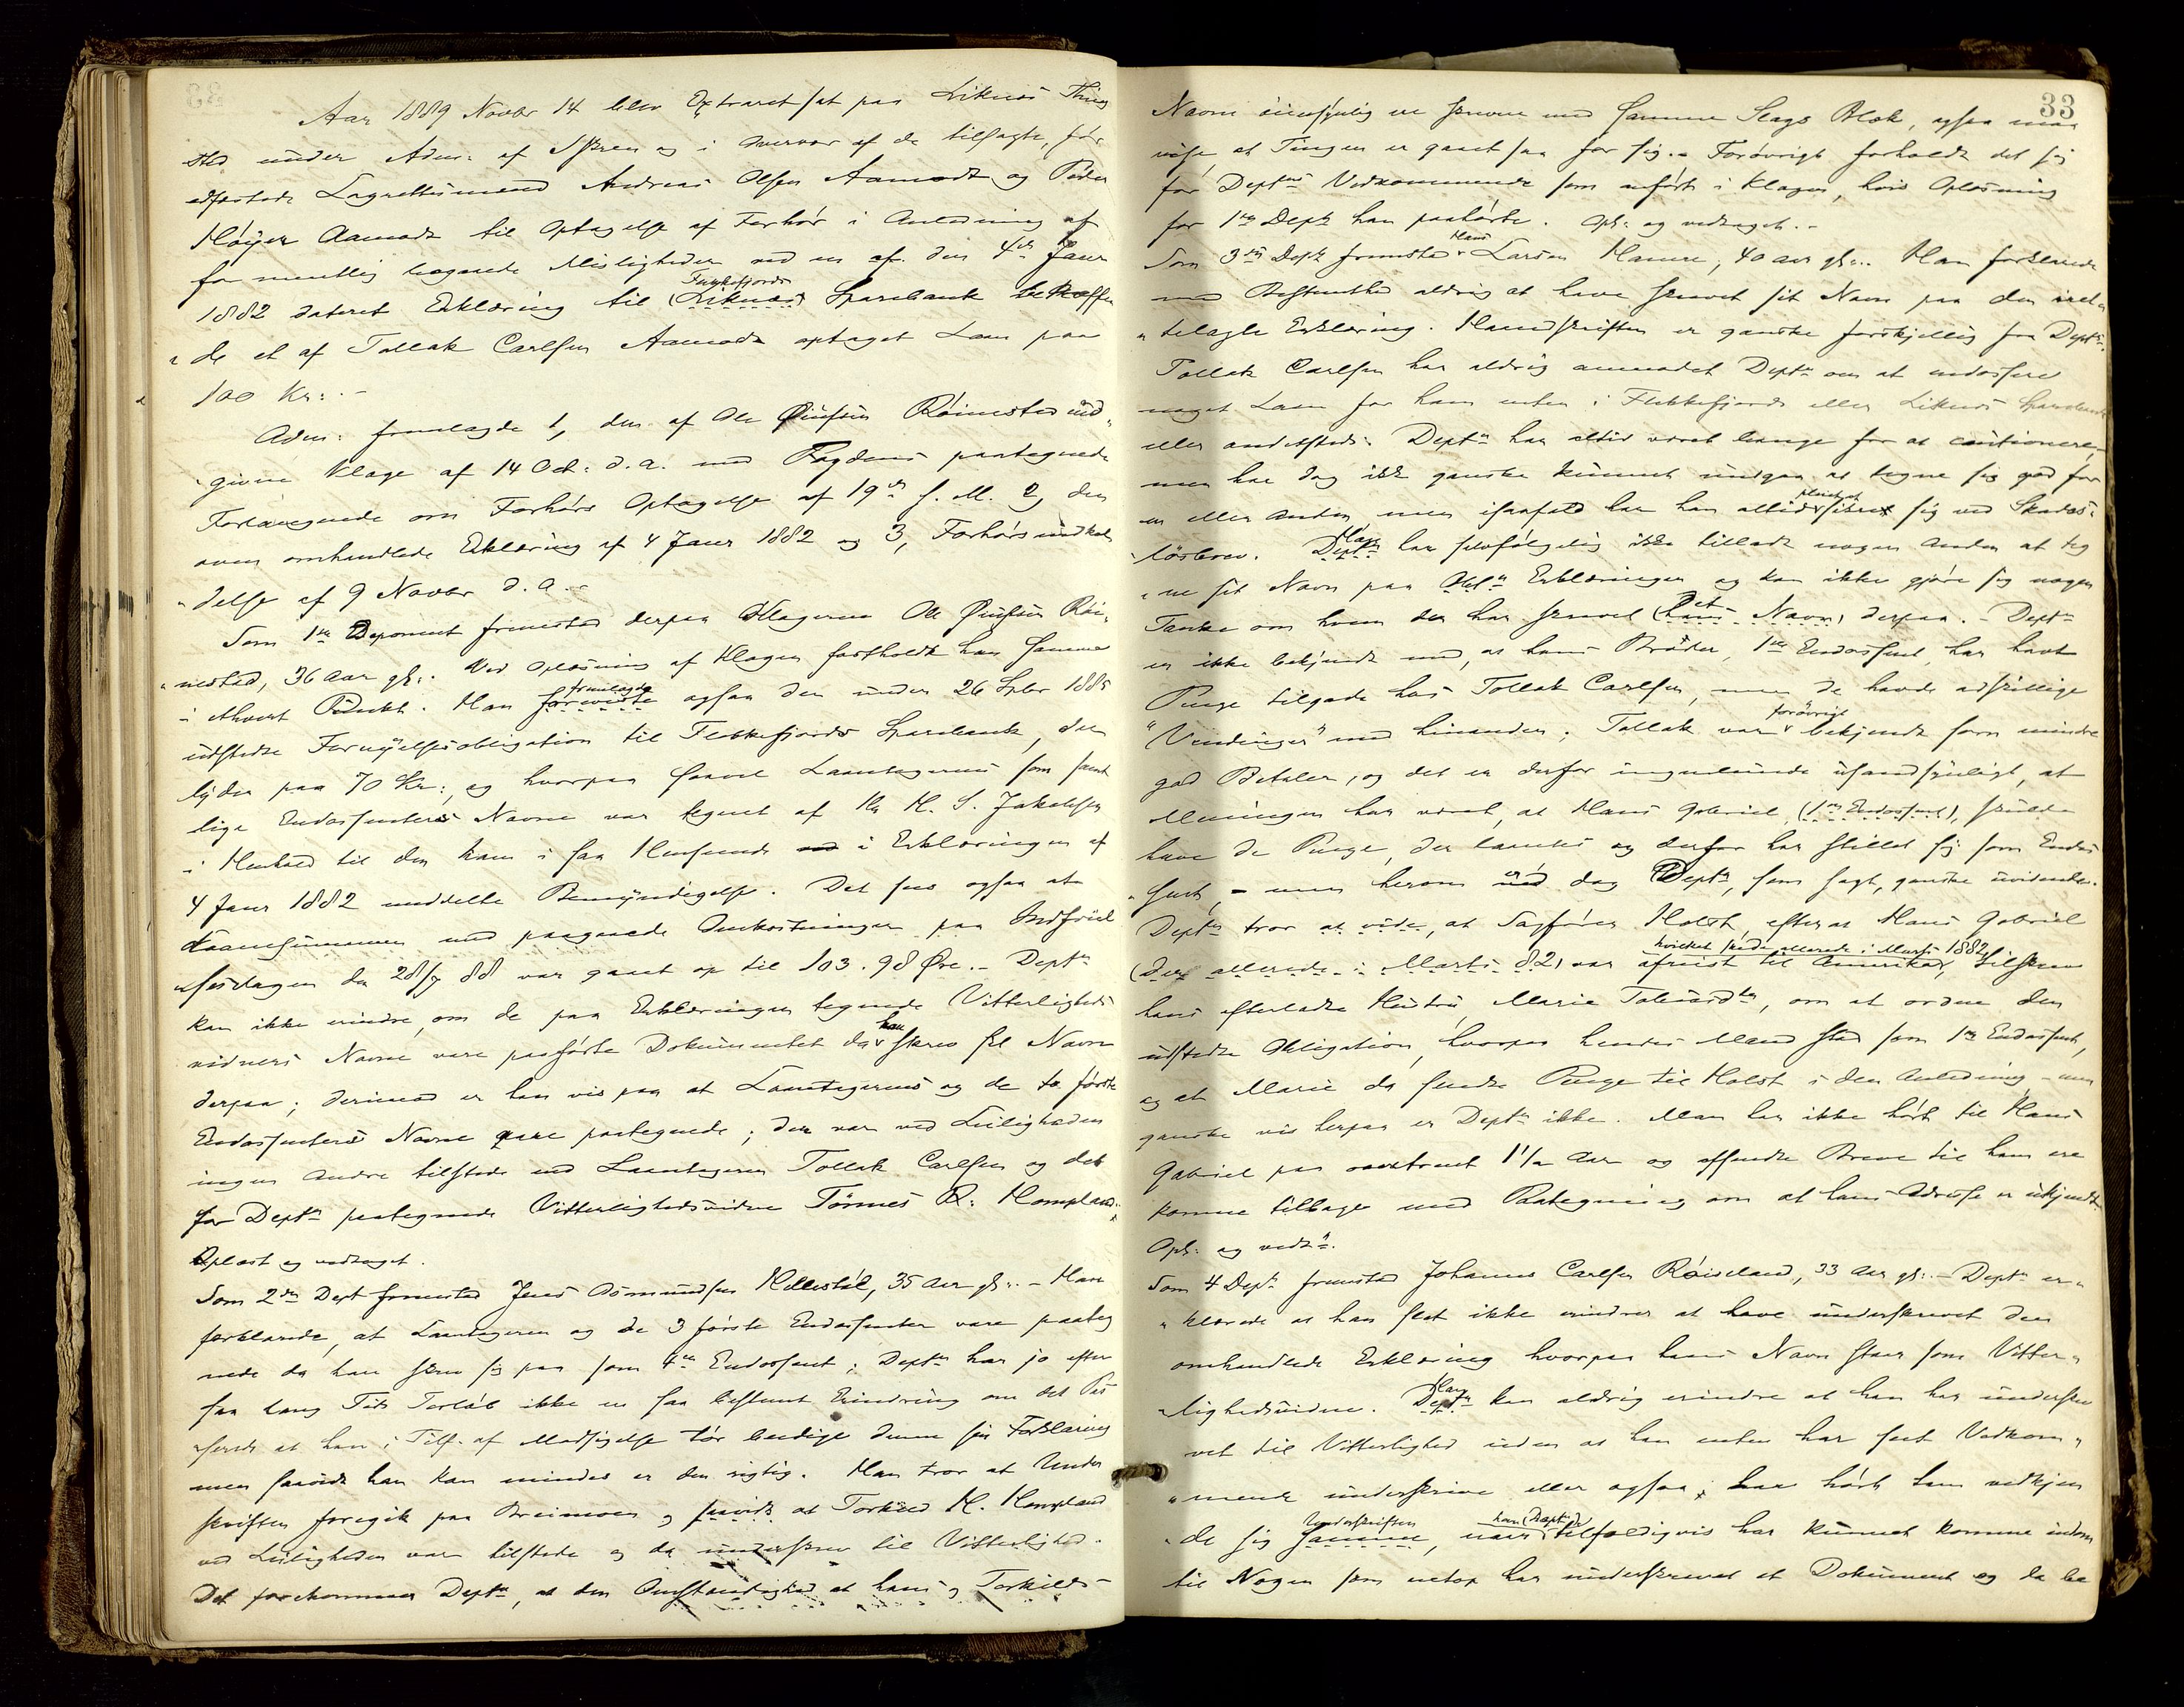 Aar 1889 Novbr 14 blev Extraret sat paa Liknæs Thing
sted under Adm: af Skren og i Overvær af de tilsagte, før
edfæstede Lagrettesmænd Andreas Olsen Aamodt og Peder
Høyer Aamodt til Optagelse af Forhør i Anledning af
formentlig begaaede Misligheder ved en af den 4de Janr
1882 dateret Erklæring til (Liknæs) Flekkefjords Sparebank
de et af Tollak Carlsen Aamodt optaget Laan paa
100 Kr:. -
Adm: fremlagde 1, den af Ole Røinestad ind-
givne Klage af 14 Oct: d.a. med Fogdens paategnede
Forlangende om Forhørs Optagelse af 19de s. M. 2, den
oven omhandlede Erklæring af 4 Janr 1882 og 3, Forhørsindkal
delse af 9 Novbr d. a. -
Som 1ste Deponent fremstod derpaa Klageren Ole Røi-
nestad, 36 Aar gl:. Ved Oplæsning af Klagen fastholdt han samme
i ethvert Punkt. Han foreviste fremlagde ogsaa den under 26 1885
udstedte Fornyelsesobligation til Flekkefjords Sparebank, der
lyder paa 70 Kr:, og hvorpaa saavel Laantagerens som samt
lige Endossenters Navne var tegnet af Hr H. S. Jakobsen
i Henhold til den ham i saa Henseende i Erklæringen af
4 Janr 1882 meddelte Bemyndigelse. Det sees ogsaa at
Laanesummen med paagaaede Omkostninger paa Indfriel
sesdagen den 28/7 88 var gaaet op til 103.98 Øre. - Deptn
kan ikke erindre, om de paa Erklæringen tegnede Vitterligheds
vidners Navne vare paaførte Dokumentet da han skrev sit Navn
derpaa; derimod er han vis paa at Laantagerens og de to første
Endossenters Navne vare paategnede; der var ved Leiligheden
ingen andre tilstede end Laantageren Tollak Carlsen og det
for Deptn paategnede Vitterlighedsvidne Tönnes R: Hompland.
Oplæst og vedtaget.
Som 2den Dept fremstod Jens Asmundsen Kellestøl, 35 Aar gl:. - Han
forklarede, at Laantageren og de 3 første Endossenter vare paateg
nede da han skrev sig paa som 4de Endossent; Deptn har jo efter
saa lang Tids Forløb ikke en saa bestemt Erindring om det
serede at han i Tilf. af Modsigelse tør beedige denne sin Forklaring
men saavidt han kan mindes er den rigtig. Han tror at Under
skriften foregik paa Breimoen og saavidt at Torkild H. Hompland
ved Leiligheden var tilstede og da underskrev til Vitterlighed.
Det forekommer Deptn, at den Omstændighed at hans og Torkilds
33
Navne øiensynlig er skrevne med samme Slags Blæk, ogsaa maa
vise at Tingen er gaaet saa for sig. - Forøvrigt forholdt det sig
for Deptens Vedkommende som anført i Klagen, hvis Oplæsning
for 1ste Dept han paahørte. Opl: og vedtaget. -
Som 3die Dept fremstod Hans Larsen Hamre, 40 aar gl:. Han forklarede
med Bestemthed aldrig at have skrevet sit Navn paa den iret-
telagte Erklæring. Haandskriften er ganske forskjellig fra Deptns.
Tollak Carlsen har aldrig anmodet Deptn om at endossere
noget Laan for ham enten i Flekkefjords eller Liknæs Sparebank
eller andetsteds. Deptn har altid været bange for at cautionere,
men har dog ikke ganske kunnet undgaa at tegne sig god for
en eller anden, men isaafald har han altid pleiet at sikret sig ved Skades-
løsbrev. Deptn Han har selvfølgelig ikke tilladt nogen anden at teg
ne sit Navn paa Erklæringen og kan ikke gjøre sig nogen
Tanke om hvem der har skrevet (hans Navn) det derpaa. - Deptn
er ikke bekjendt med, at hans Broder, 1ste Endossent, har havt
Penge tilgode hos Tollak Carlsen, men de havde adskillige
"Vendinger" med hinanden; Tollak var forøvrigt bekjendt som mindre
god Betaler, og det er derfor ingenlunde usandsynligt, at
Meningen har været, at Hans Gabriel, (1ste Endossent), skulde
have de Penge, der laantes og derfor har stillet sig som Endos
sent, - men herom er dog Deptn, som sagt, ganske uvidende.
Deptn tror at vide, at Sagfører Holst, efterat Hans Gabriel
(der allerede i Marts 82) var afreist til Amerika, hvilket skede allerede i Marts 1882, tilskrev
hans efterladte Hustru, Marie, om at ordne den
udstedte Obligation, hvorpaa hendes Mand stod som 1ste Endossent,
og at Marie da sendte Penge til Holst i den Anledning - men
ganske vis herpaa er Deptn ikke. Man har ikke hørt til Hans
Gabriel paa omtrent 1 1/2 Aar og afsendte Breve til ham ere
komne tilbage med Paategning om at hans Adresse er ukjendt.
Opl: og vedt:.
Som 4 Dept fremstod Johannes Carlsen Røiseland, 33 Aar gl:. - Deptn er-
klærede at han slet ikke erindrer at have underskrevet den
omhandlede Erklæring hvorpaa hans Navn staar som Vitter-
lighedsvidne. Deptn Han kan aldrig erindre at han har underskre
vet til Vitterlighed uden at han enten har seet Vedkom-
mende underskrive eller ogsaa har hørt ham vedkjen
de sig samme Underskriften, naar han (Deptn) tilfældigvis har kunnet komme indom
til Nogen som netop har underskrevet et Dokument og da be